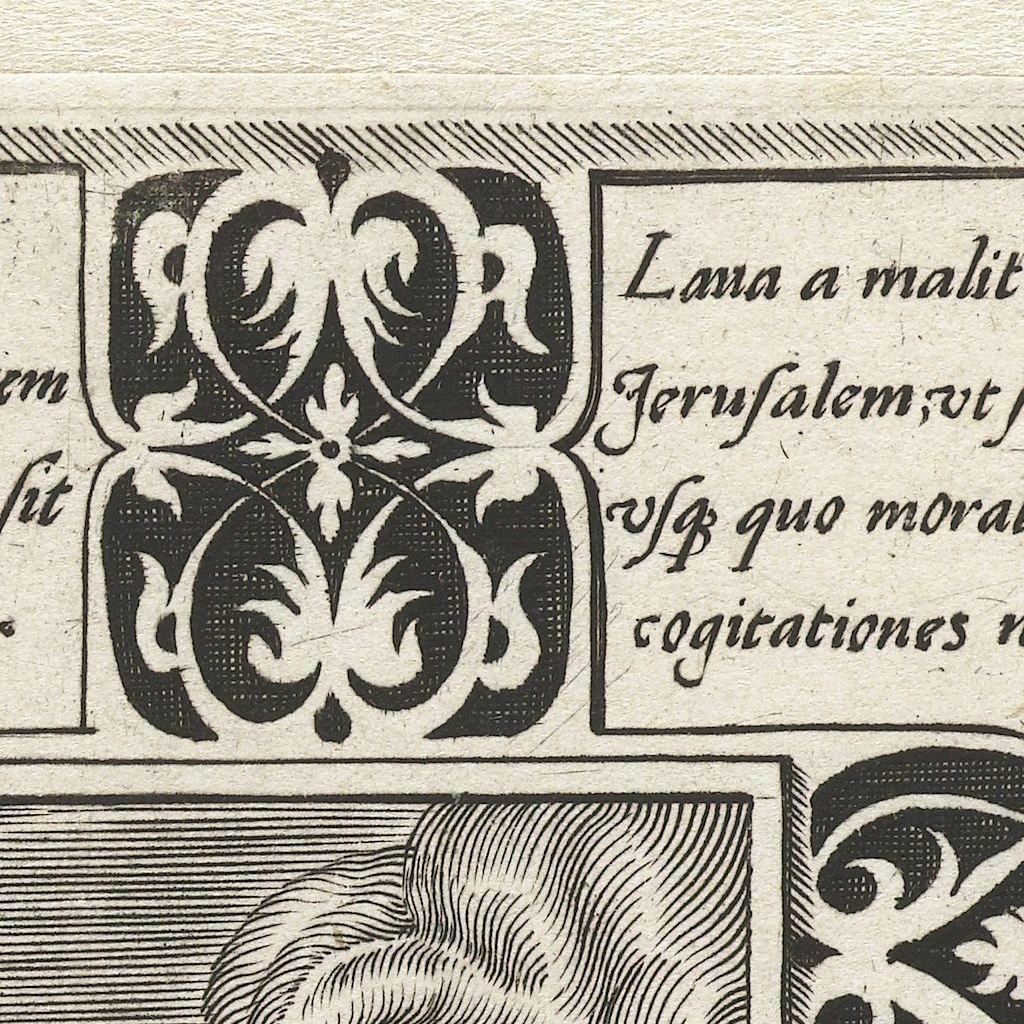 em
ſit
Laua a malit
Jeruſalem, vt ſ
vſqꝫ quo mora
cogitationes n